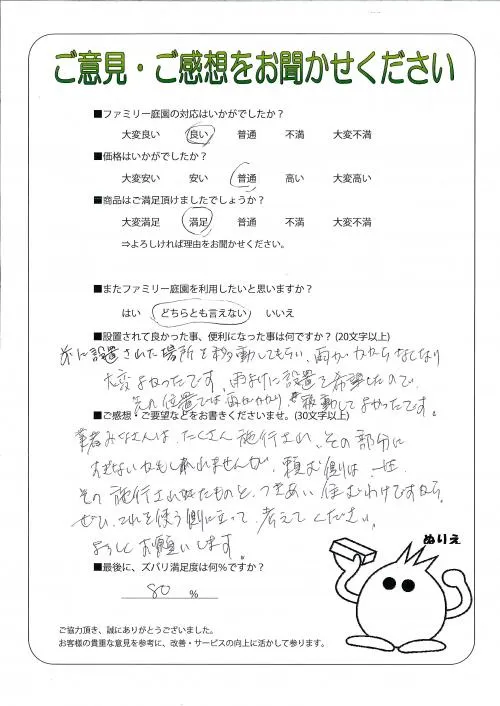 ご意見・ご感想をお聞かせください
■ファミリー庭園の対応はいかがでしたか？
大変良い 良い 普通 不満 大変不満
■価格はいかがでしたか？
大変安い 安い 普通 高い 大変高い
■商品はご満足頂けましたでしょうか？
大変満足 満足 普通 不満 大変不満
⇒よろしければ理由をお聞かせください。
■またファミリー庭園を利用したいと思いますか？
はい どちらとも言えない いいえ
■設置されて良かった事、便利になった事は何ですか？(20文字以上)
に設置された場所を移動してもらい、雨がかからなくなり
大変よかったです。雨よけに設置を希望したので、
元の位置では雨がかかり、移動してよかったです。
■ご感想・ご要望などをお書きくださいませ。(30文字以上)
業者みなさんは、たくさん施行され、その部分に
すぎないかもしれませんが、頼む側は、一生
その施行されたものと、つきあい住むわけですから、
ぜひ、これを使う側に立って、考えてください。
よろしくお願いします。
■最後に、ズバリ満足度は何％ですか？
80 ％
ぬりえ
ご協力頂き、誠にありがとうございました。
お客様の貴重な意見を参考に、改善・サービスの向上に活かして参ります。